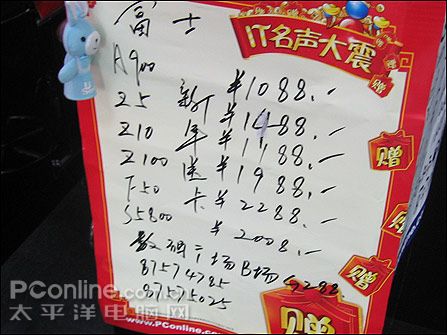 富士
IT名声大震
A900 ¥1088.-
Z5 新 ¥1488.-
Z10 年 ¥1188.-
Z100 送 ¥1988.-
F50 卡 ¥2288.-
S5800 ¥2008.-
数码广场B场 G288
87574785
87575025
赠
赠
赠
赠
赠
PConline.com.cn
太平洋电脑网
www.PConline.com